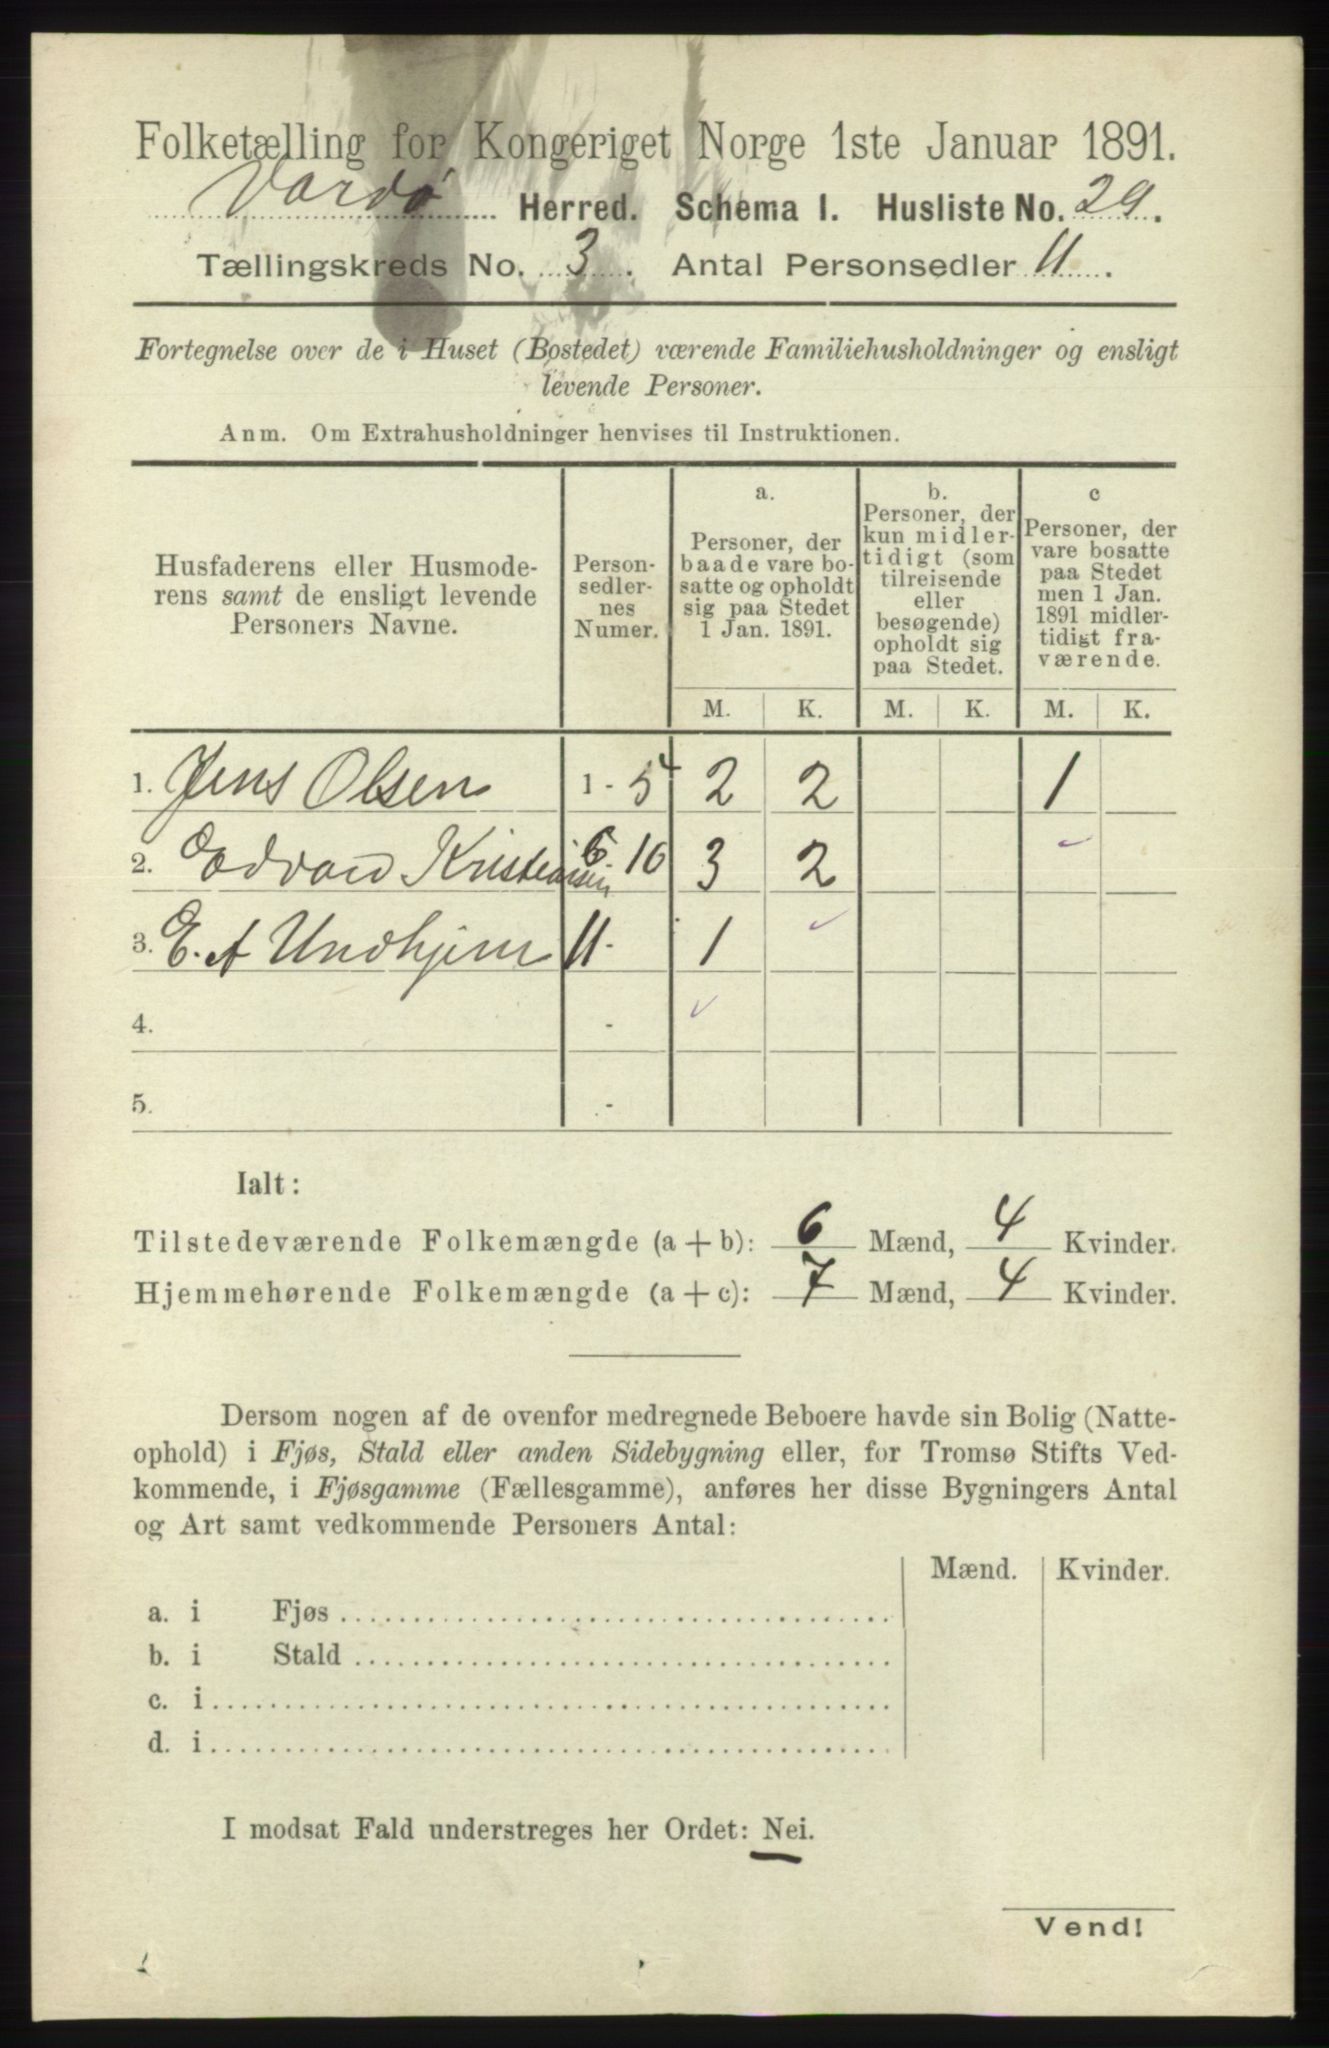 Folketælling for Kongeriget Norge 1ste Januar 1891.
Vardø Herred. Schema I. Husliste No. 29.
Tællingskreds No. 3. Antal Personsedler 11.
Fortegnelse over de i Huset (Bostedet) værende Familiehusholdninger og ensligt
levende Personer.
Anm. Om Extrahusholdninger henvises til Instruktionen.
Husfaderens eller Husmode-
rens samt de ensligt levende
Personers Navne.
Person-
sedler-
nes
Numer.
a.
Personer, der
baade vare bo-
satte og opholdt
sig paa Stedet
1 Jan. 1891.
b.
Personer, der
kun midler-
tidigt (som
tilreisende
eller
besøgende)
opholdt sig
paa Stedet.
c
Personer, der
vare bosatte
paa Stedet
men 1 Jan.
1891 midler-
tidigt fra-
værende.
M. K. M. K. M. K.
1. Jens Olsen 1 - 5 2 2 1
2. Edvard Kristiansen 6 10 3 2
3. E. A Undhjem 11 - 1
4. -
5. -
Ialt:
Tilstedeværende Folkemængde (a + b): 6 Mænd, 4 Kvinder.
Hjemmehørende Folkemængde (a + c): 7 Mænd, 4 Kvinder.
Dersom nogen af de ovenfor medregnede Beboere havde sin Bolig (Natte-
ophold) i Fjøs, Stald eller anden Sidebygning eller, for Tromsø Stifts Ved-
kommende, i Fjøsgamme (Fællesgamme), anføres her disse Bygningers Antal
og Art samt vedkommende Personers Antal:
Mænd. Kvinder.
a. i Fjøs
b. i Stald
c. i
d. i
I modsat Fald understreges her Ordet: Nei.
Vend!